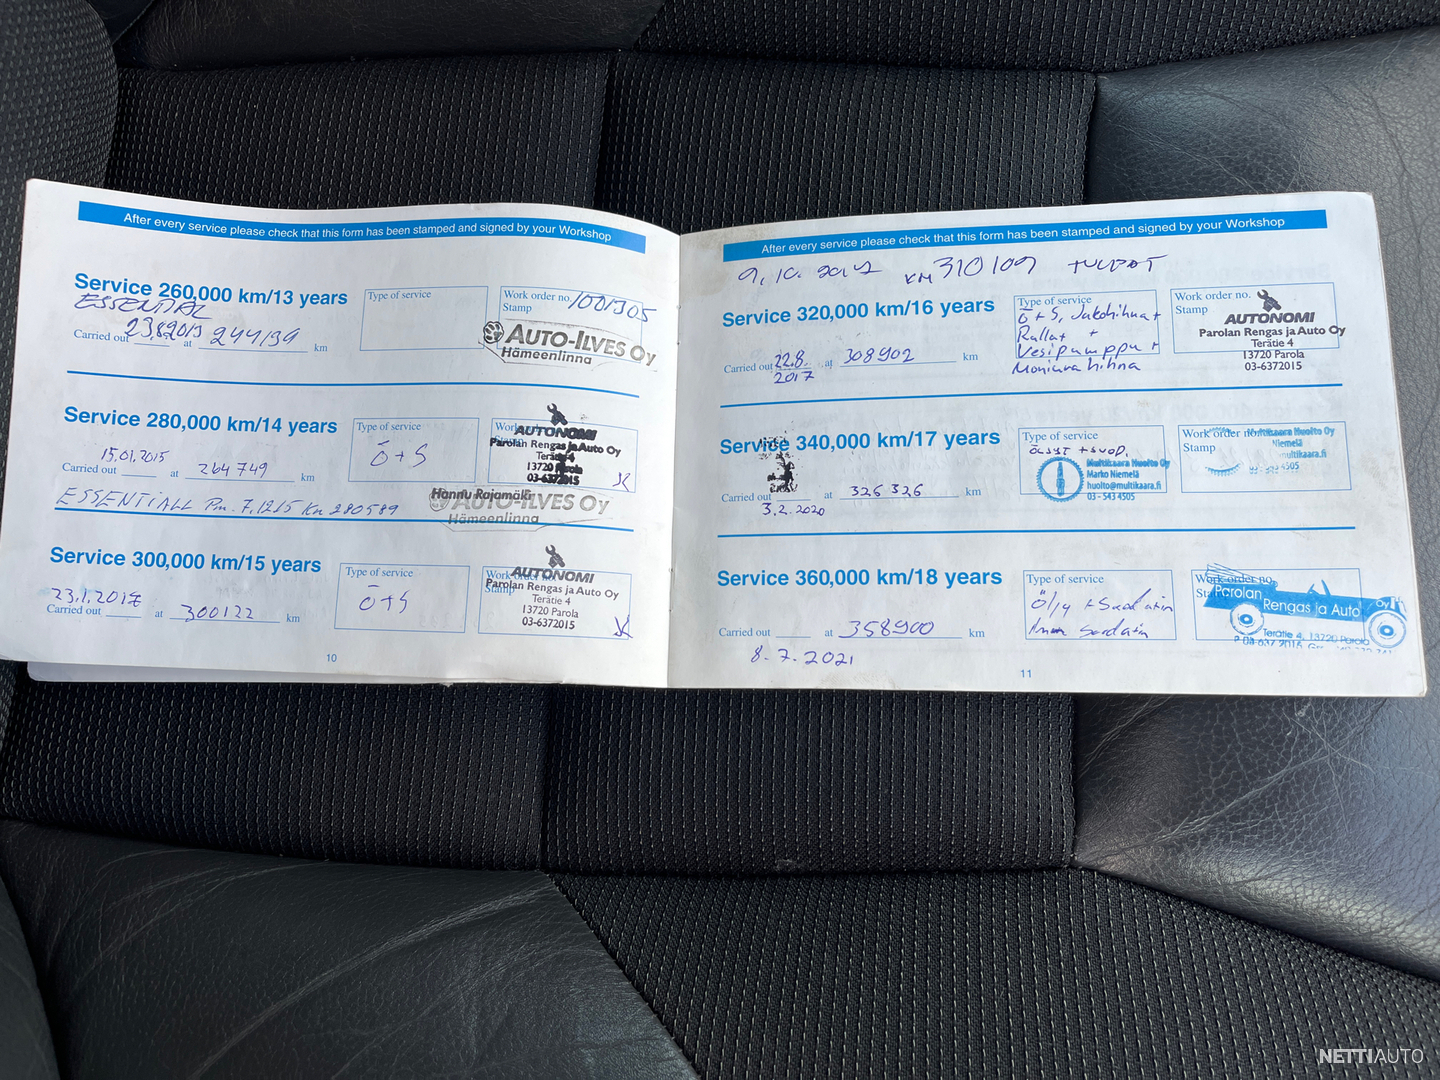 After every service please check that this form has been stamped and signed by your Workshop
Service 260,000 km/13 years
ESSENTIAL
Carried out 23.8.2013 at 244139 km
Type of service
Work order no. 1001305
Stamp
AUTO-ILVES Oy
Hämeenlinna
Service 280,000 km/14 years
15.01.2015
Carried out at 264 749 km
Type of service
Ö + S
AUTONOMI
Parolan Rengas ja Auto Oy
Terätie 4
13720 Parola
03-6372015
ESSENTIALL Pm. 7.12/5 Km 280589
Hannu Rajamälä
AUTO-ILVES Oy
Hämeenlinna
Service 300,000 km/15 years
23.1.2017
Carried out at 300122 km
Type of service
Ö+S
Work order no.
Stamp
AUTONOMI
Parolan Rengas ja Auto Oy
Terätie 4
13720 Parola
03-6372015
10
After every service please check that this form has been stamped and signed by your Workshop
9.10.2017 KM 310109 TULPAT
Service 320,000 km/16 years
Carried out 22.8. at 308902 km
2017
Type of service
Ö + S, Jakohihna +
Rullat +
Vesipumppu +
Moniura hihna
Work order no.
Stamp
AUTONOMI
Parolan Rengas ja Auto Oy
Terätie 4
13720 Parola
03-6372015
Service 340,000 km/17 years
Carried out at 326 326 km
3.2.2020
Type of service
ÖLJYT + SUOD.
Multikaara Huolto Oy
Marko Niemelä
huolto@multikaara.fi
03 - 543 4505
Work order no.
Stamp
Multikaara Huolto Oy
Niemelä
multikaara.fi
4505
Service 360,000 km/18 years
Carried out at 358900 km
8.7.2021
Type of service
Öljy + Suodatin
Suodatin
Work order no.
Parolan
Rengas ja Auto Oy
Terätie 4, 13720 Parola
11
NETTIAUTO